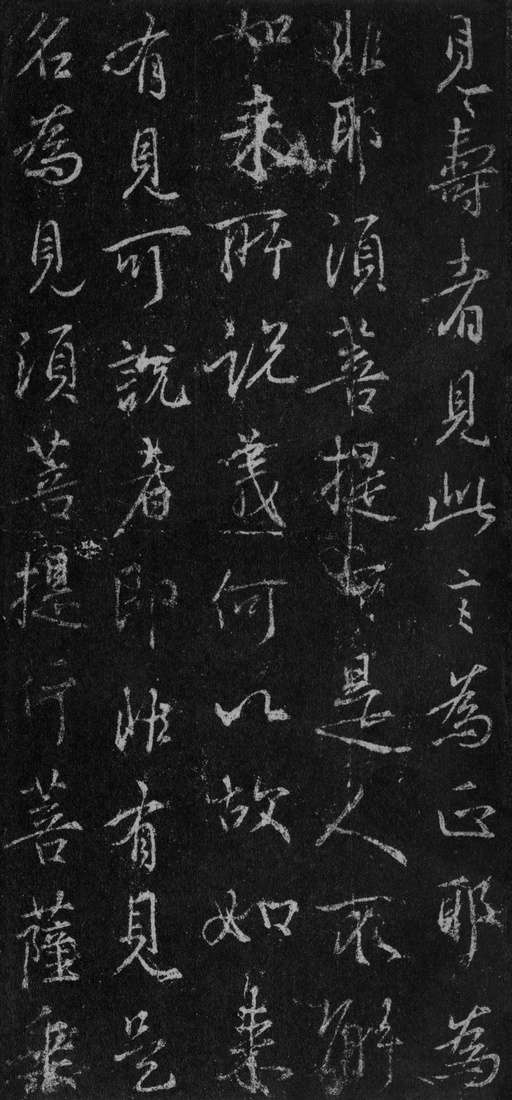 見壽者見此言為正耶為
非耶須菩提言是人不解
如來所說義何以故如來
有見可說者即非有見是
名為見須菩提行菩薩乘